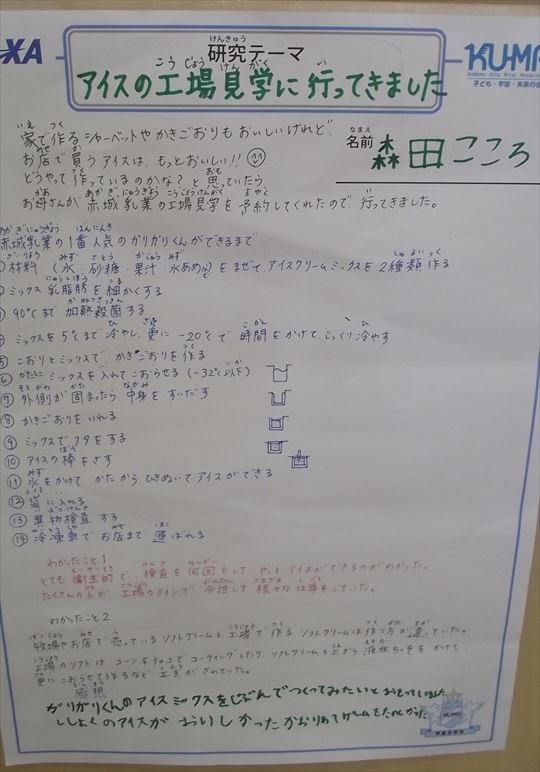 XA
研究テーマ
KUMA
子ども・宇宙・未来の会
アイスの工場見学に行ってきました
名前 森田こころ
家で作るシャーベットやかきごおりもおいしいけれど、
お店で買うアイスは、もっとおいしい!!
どうやって作っているのかな?と思っていたら
お母さんが赤城乳業の工場見学を予約してくれたので、行ってきました。
赤城乳業の1番人気のガリガリくんができるまで
材料(水・砂糖・果汁・水あめなど)をまぜて、アイスクリームミックスを2種類作る
ミックス乳脂肪を細かくする
90℃まで加熱殺菌する
ミックスを5℃まで冷やし、更に-20℃で時間をかけて、じっくり冷やす
⑤こおりとミックスでかきごおりを作る
⑥かたにミックスを入れてこおらせる(-32℃以下)
⑦外側が固まったら、中身をすいだす
⑧かきごおりをいれる
⑨ミックスでフタをする
⑩アイスの棒をさす
⑪水をかけてかたからひきぬいてアイスができる
⑫袋に入れる
⑬異物検査する
⑭冷凍車でお店まで運ばれる
わかったこと1
とても衛生的で検査を何回もしてやっとアイスができるのがわかった。
たくさんの人が工場のラインで分担して様々な仕事をしていた。
わかったこと2
牧場やお店で売っているソフトクリームと工場で作るソフトクリームは作り方が違っていた。
工場のソフトは、コーンをチョコでコーティングしたり、ソフトクリームの上から液体ちっそをかけて、
更にこおらせて作るなど工夫がされていた。
感想
ガリガリくんのアイスミックスをじぶんでつくってみたいとおもっていました
ししょくのアイスがおいしかった
KUMA
宇宙学校